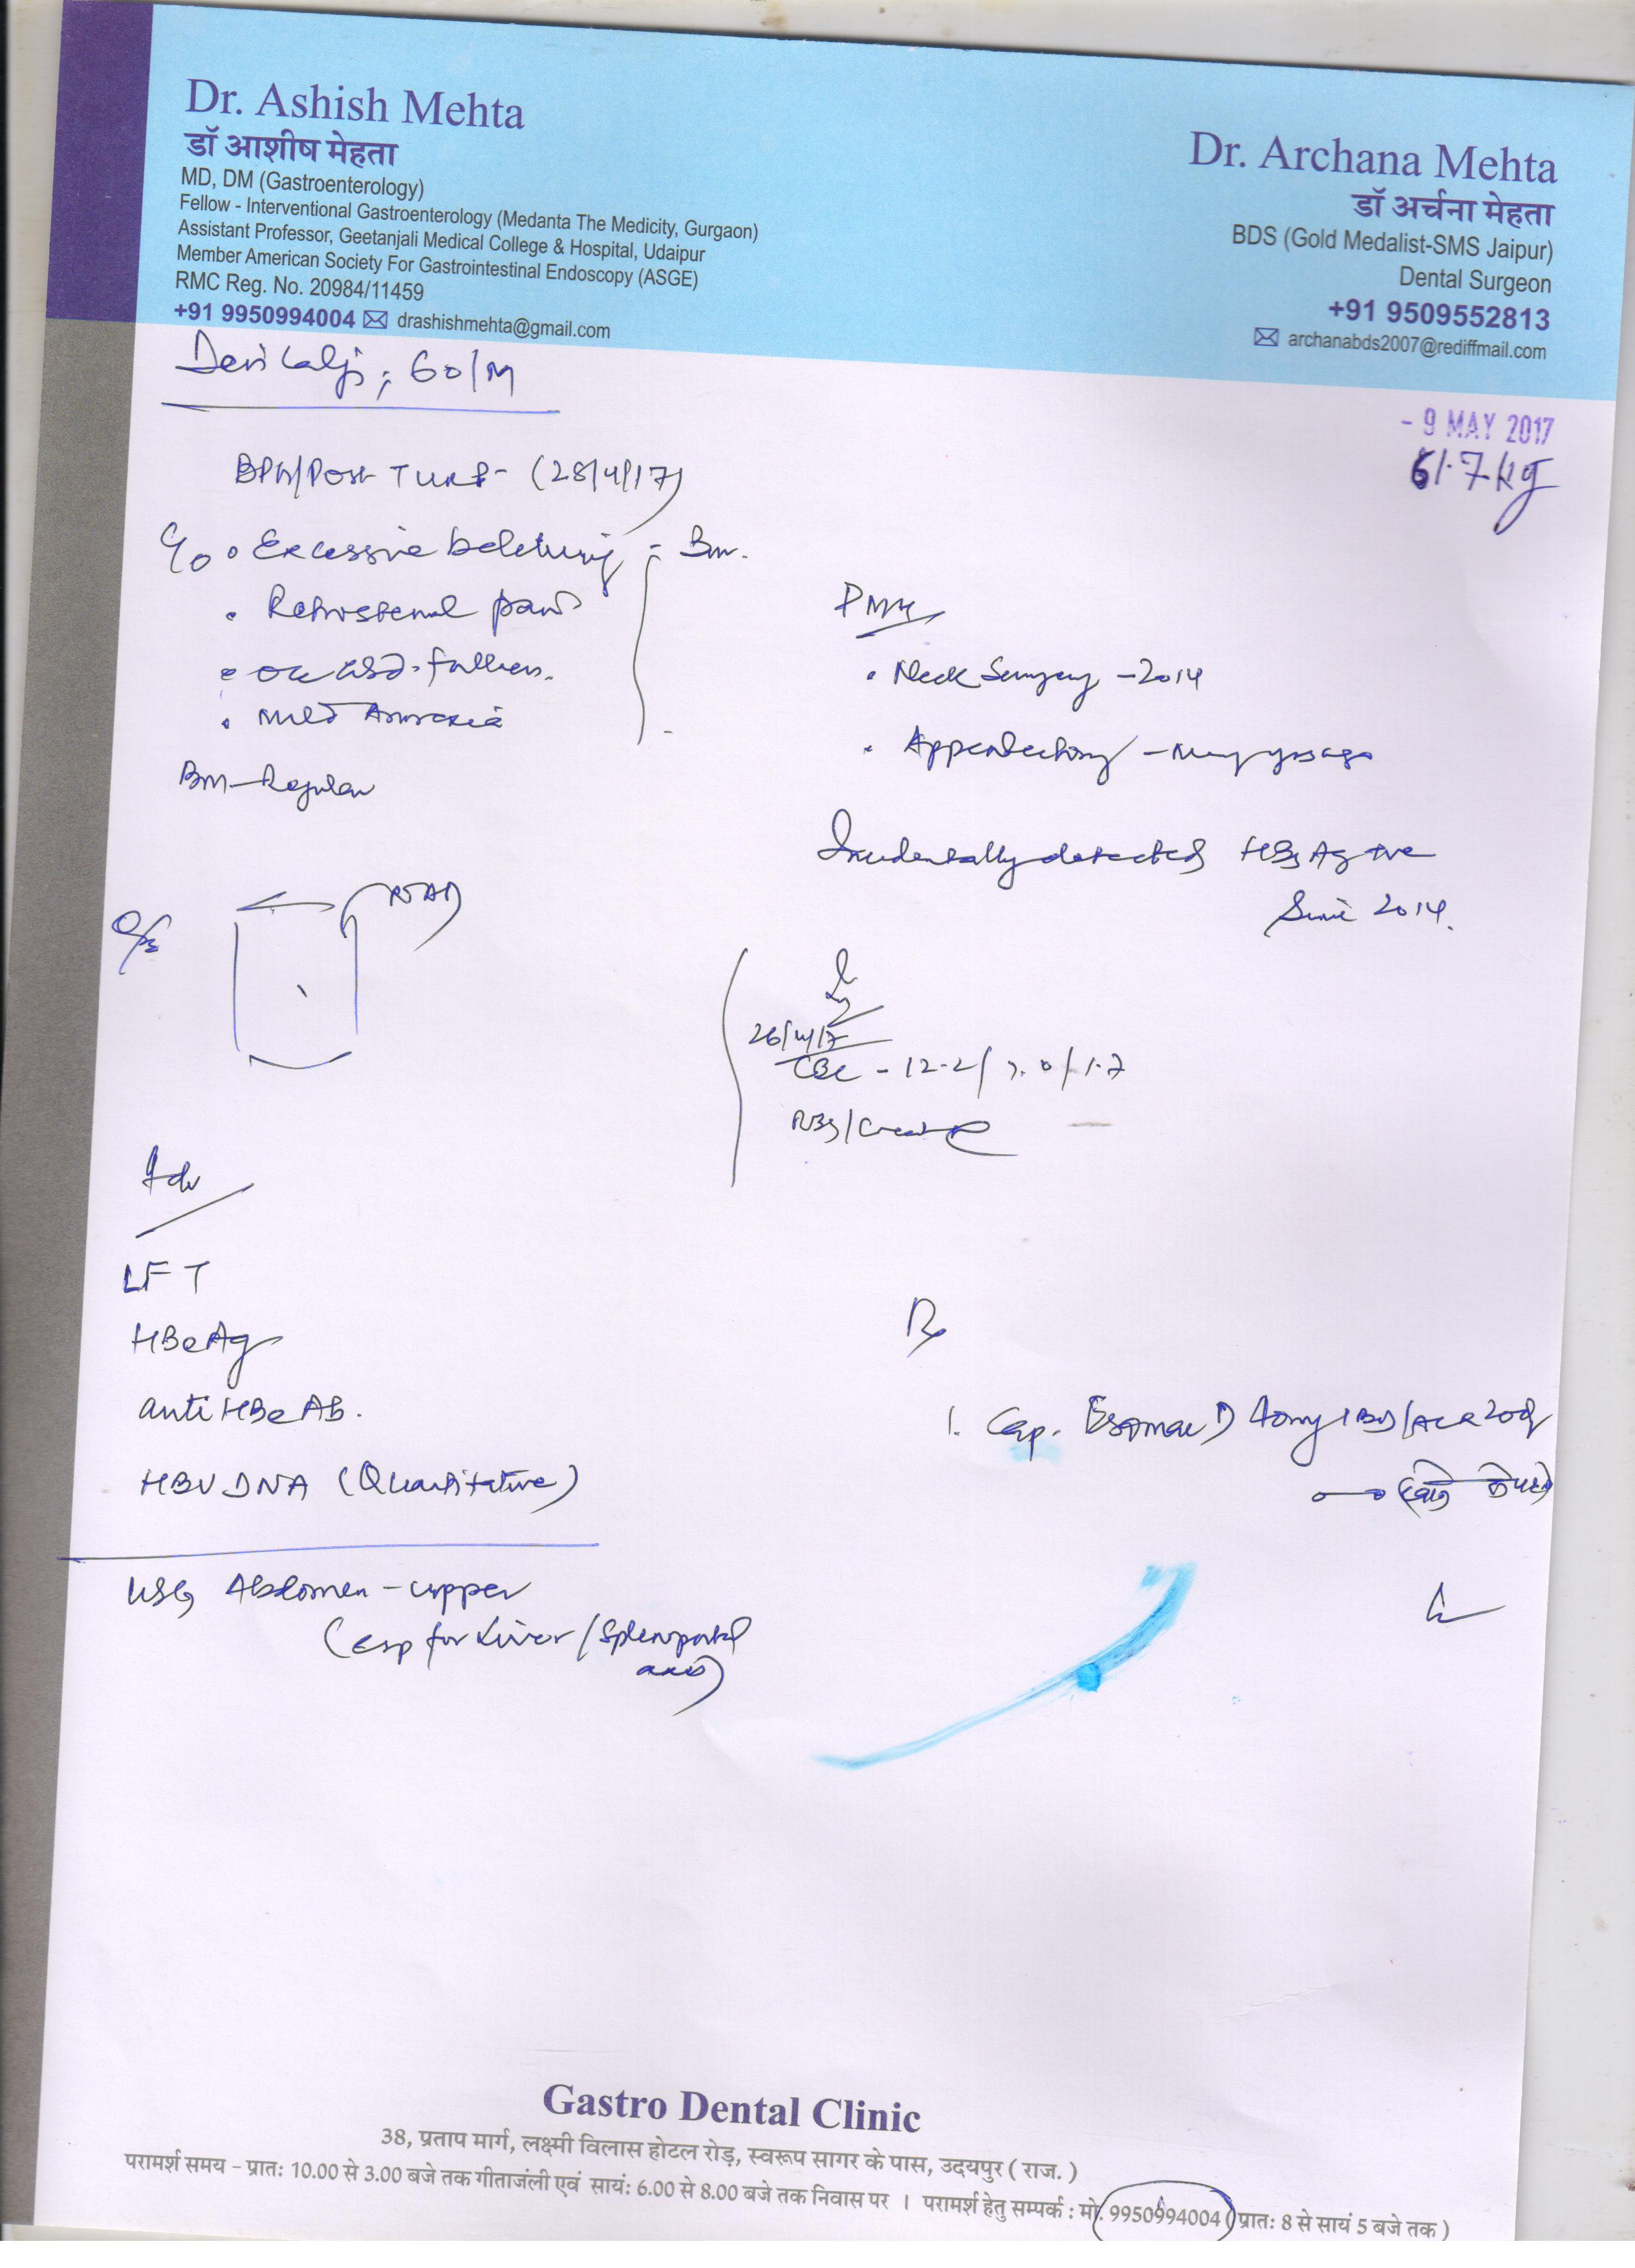 Dr. Ashish Mehta
डॉ आशीष मेहता
MD, DM (Gastroenterology)
Fellow - Interventional Gastroenterology (Medanta The Medicity, Gurgaon)
Assistant Professor, Geetanjali Medical College & Hospital, Udaipur
Member American Society For Gastrointestinal Endoscopy (ASGE)
RMC Reg. No. 20984/11459
+91 9950994004 drashishmehta@gmail.com
Dr. Archana Mehta
डॉ अर्चना मेहता
BDS (Gold Medalist-SMS Jaipur)
Dental Surgeon
+91 9509552813
archanabds2007@rediffmail.com
- 9 MAY 2017
61.7 kg
60/M
BPH/Post TURP - (28/4/17)
C/o Excessive belching
Retrosternal pain
fullness.
mild Anorexia
BM - Regular
PMH
Neck Surgery - 2014
Appendectomy - many yrs ago
Incidentally detected HBsAg +ve
Since 2014.
O/E
NAD
26/4/17
CBC - 12.2/7.0/1.7
RBS/Creat
Adv
LFT
HBeAg
anti HBe Ab.
HBV DNA (Quantitative)
USG Abdomen - upper
(esp for Liver/Splenoportal
axis)
Rx
1. Cap. 40mg 1 BD/AC x 20d
Gastro Dental Clinic
38, प्रताप मार्ग, लक्ष्मी विलास होटल रोड़, स्वरूप सागर के पास, उदयपुर ( राज. )
परामर्श समय - प्रातः 10.00 से 3.00 बजे तक गीताजंली एवं सायंः 6.00 से 8.00 बजे तक निवास पर । परामर्श हेतु सम्पर्क : मो. 9950994004 ( प्रातः 8 से सायं 5 बजे तक )